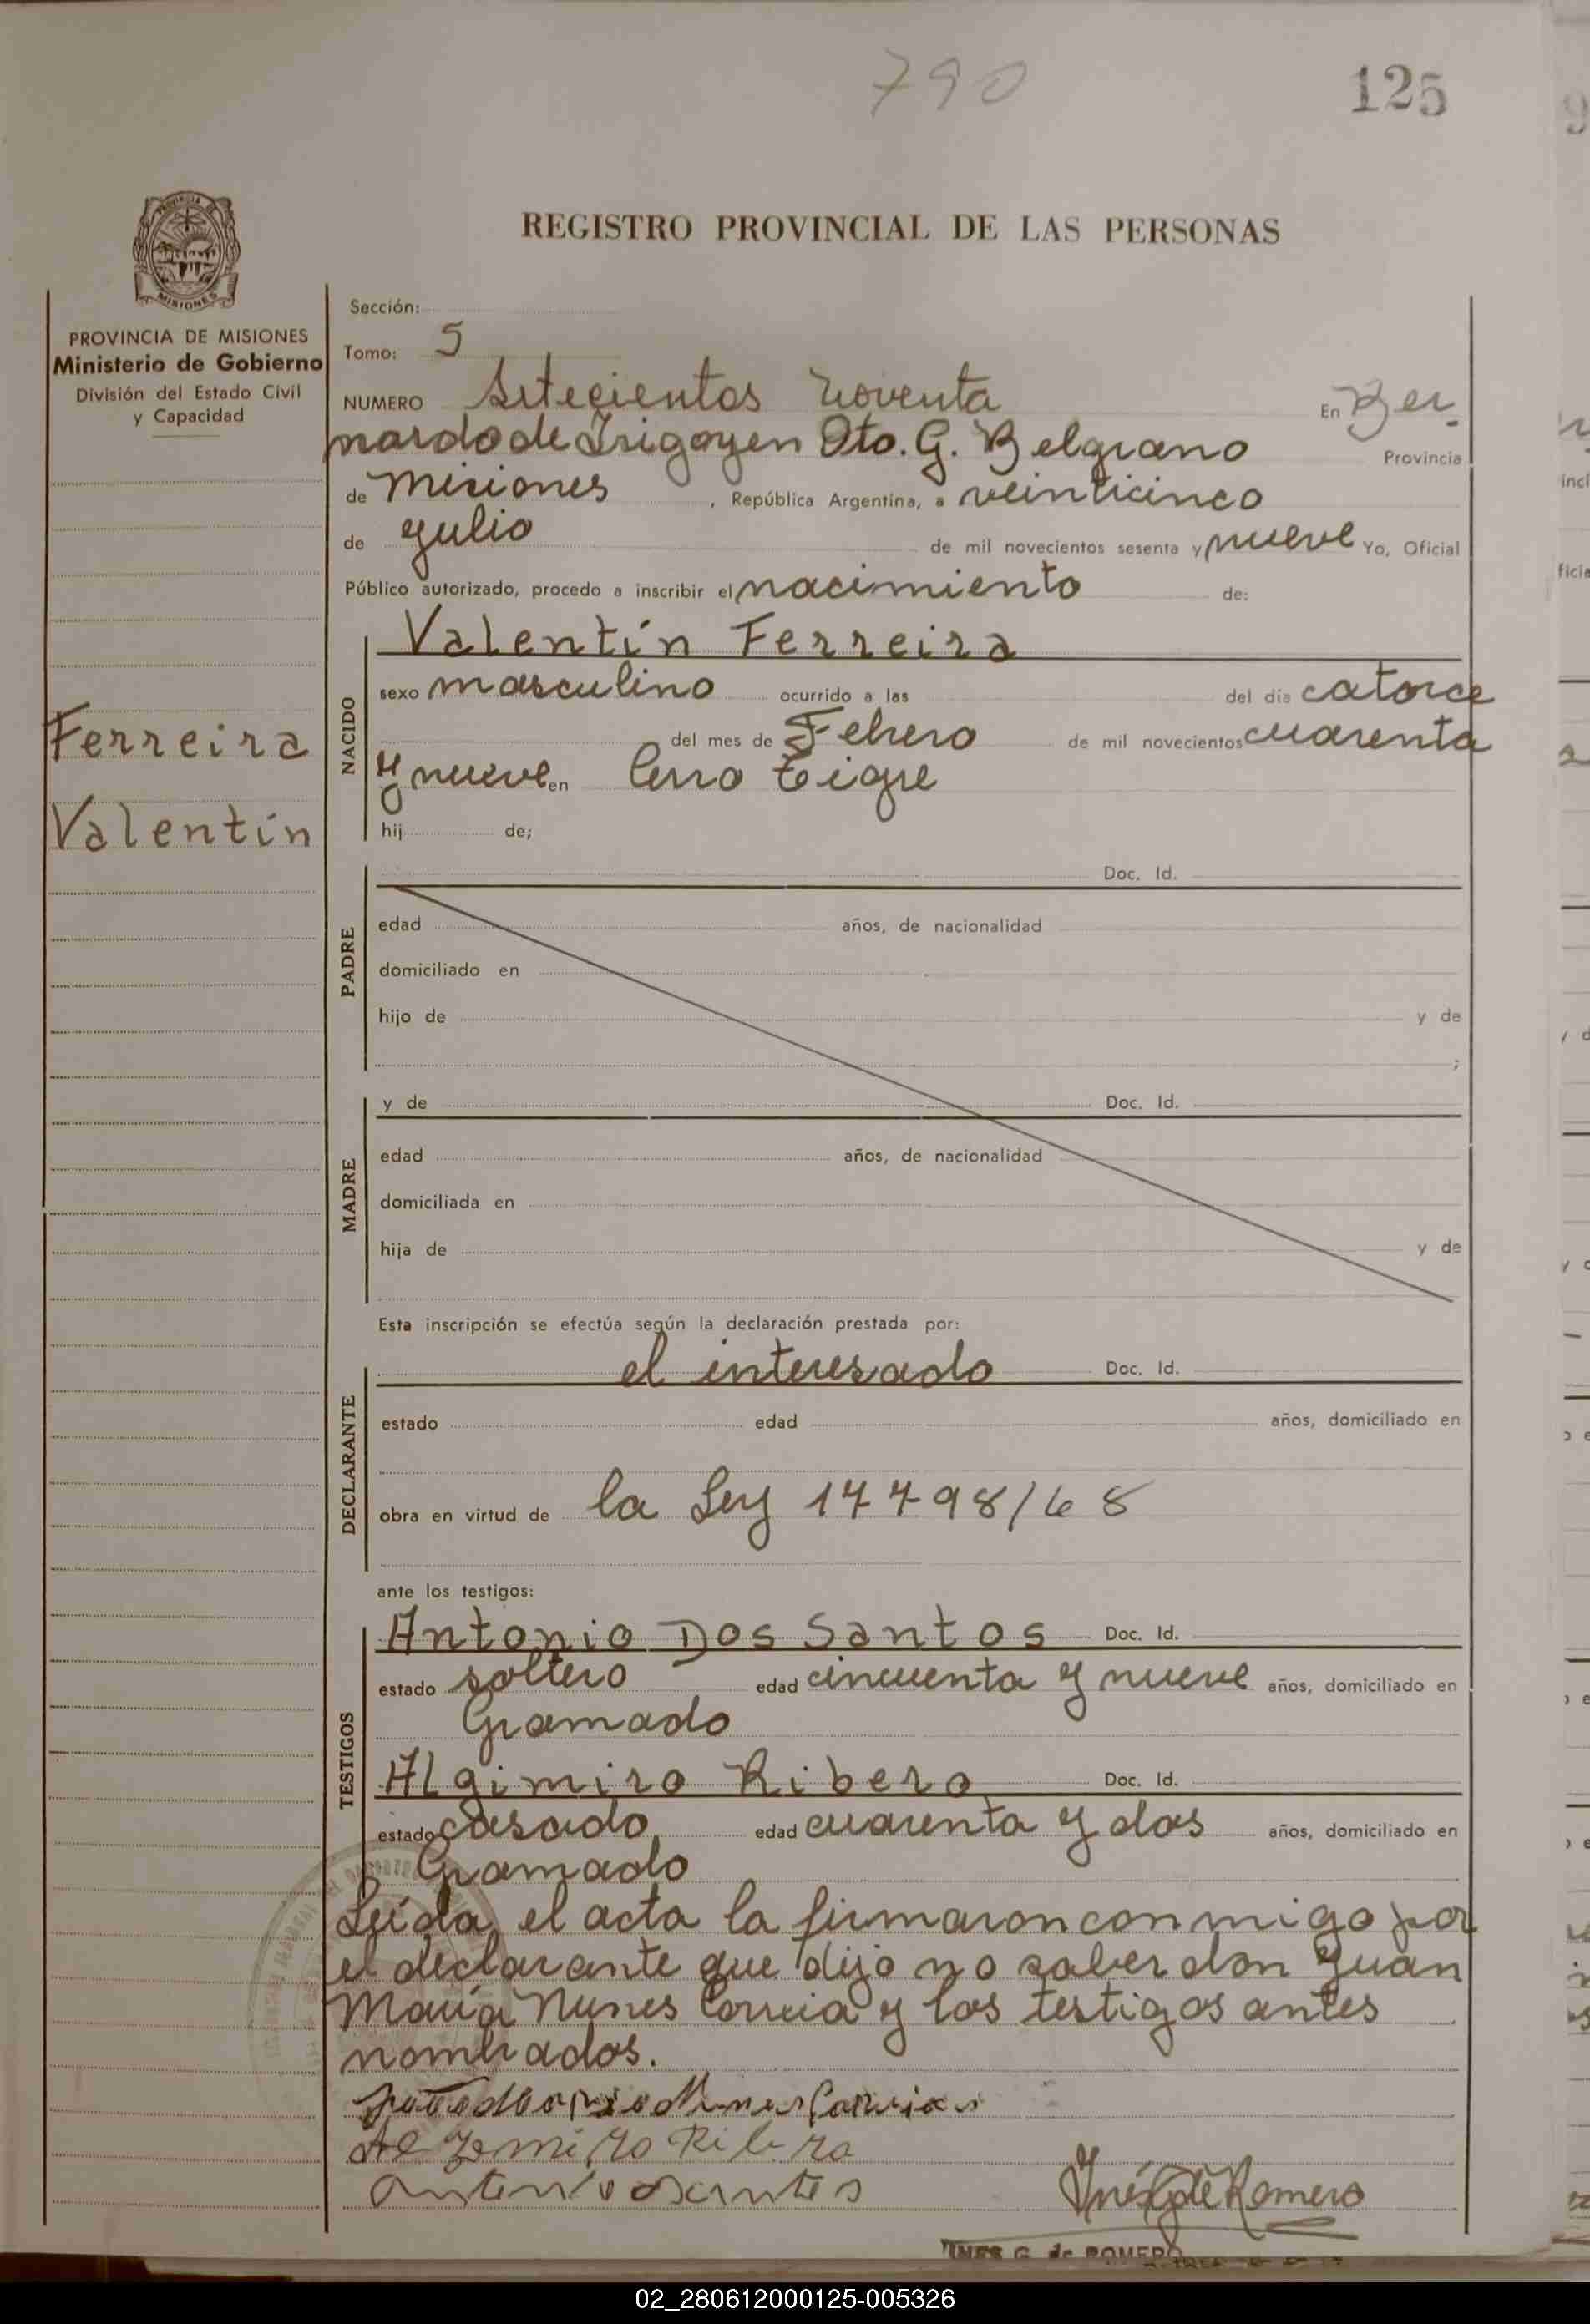 790
125
REGISTRO PROVINCIAL DE LAS PERSONAS
MISIONES
PROVINCIA DE MISIONES
Ministerio de Gobierno
División del Estado Civil
y Capacidad
Ferreira
Valentín
Sección:
Tomo: 5
NUMERO Setecientos noventa En Ber-
nardo de Irigoyen Dto. G. Belgrano Provincia
de Misiones, República Argentina, a veinticinco
de Julio de mil novecientos sesenta y nueve Yo, Oficial
Público autorizado, procedo a inscribir el nacimiento de:
NACIDO
Valentín Ferreira
sexo masculino ocurrido a las del día catorce
del mes de Febrero de mil novecientos cuarenta
y nueve en Cerro Tigre
hij de;
PADRE
Doc. Id.
edad años, de nacionalidad
domiciliado en
hijo de y de
;
MADRE
y de Doc. Id.
edad años, de nacionalidad
domiciliada en
hija de y de
Esta inscripción se efectúa según la declaración prestada por:
DECLARANTE
el interesado Doc. Id.
estado edad años, domiciliado en
obra en virtud de la Ley 17798/68
ante los testigos:
TESTIGOS
Antonio Dos Santos Doc. Id.
estado soltero edad cincuenta y nueve años, domiciliado en
Gramado
Algimiro Ribero Doc. Id.
estado casado, edad cuarenta y dos años, domiciliado en
Gramado
Leída el acta la firmaron conmigo por
el declarante que dijo no saber don Juan
María Nunes Correia y los testigos antes
nombrados.
Alzemiro Ribero
Antonio Santos
Inés G de Romero
INES G. de ROMERO
02_280612000125-005326